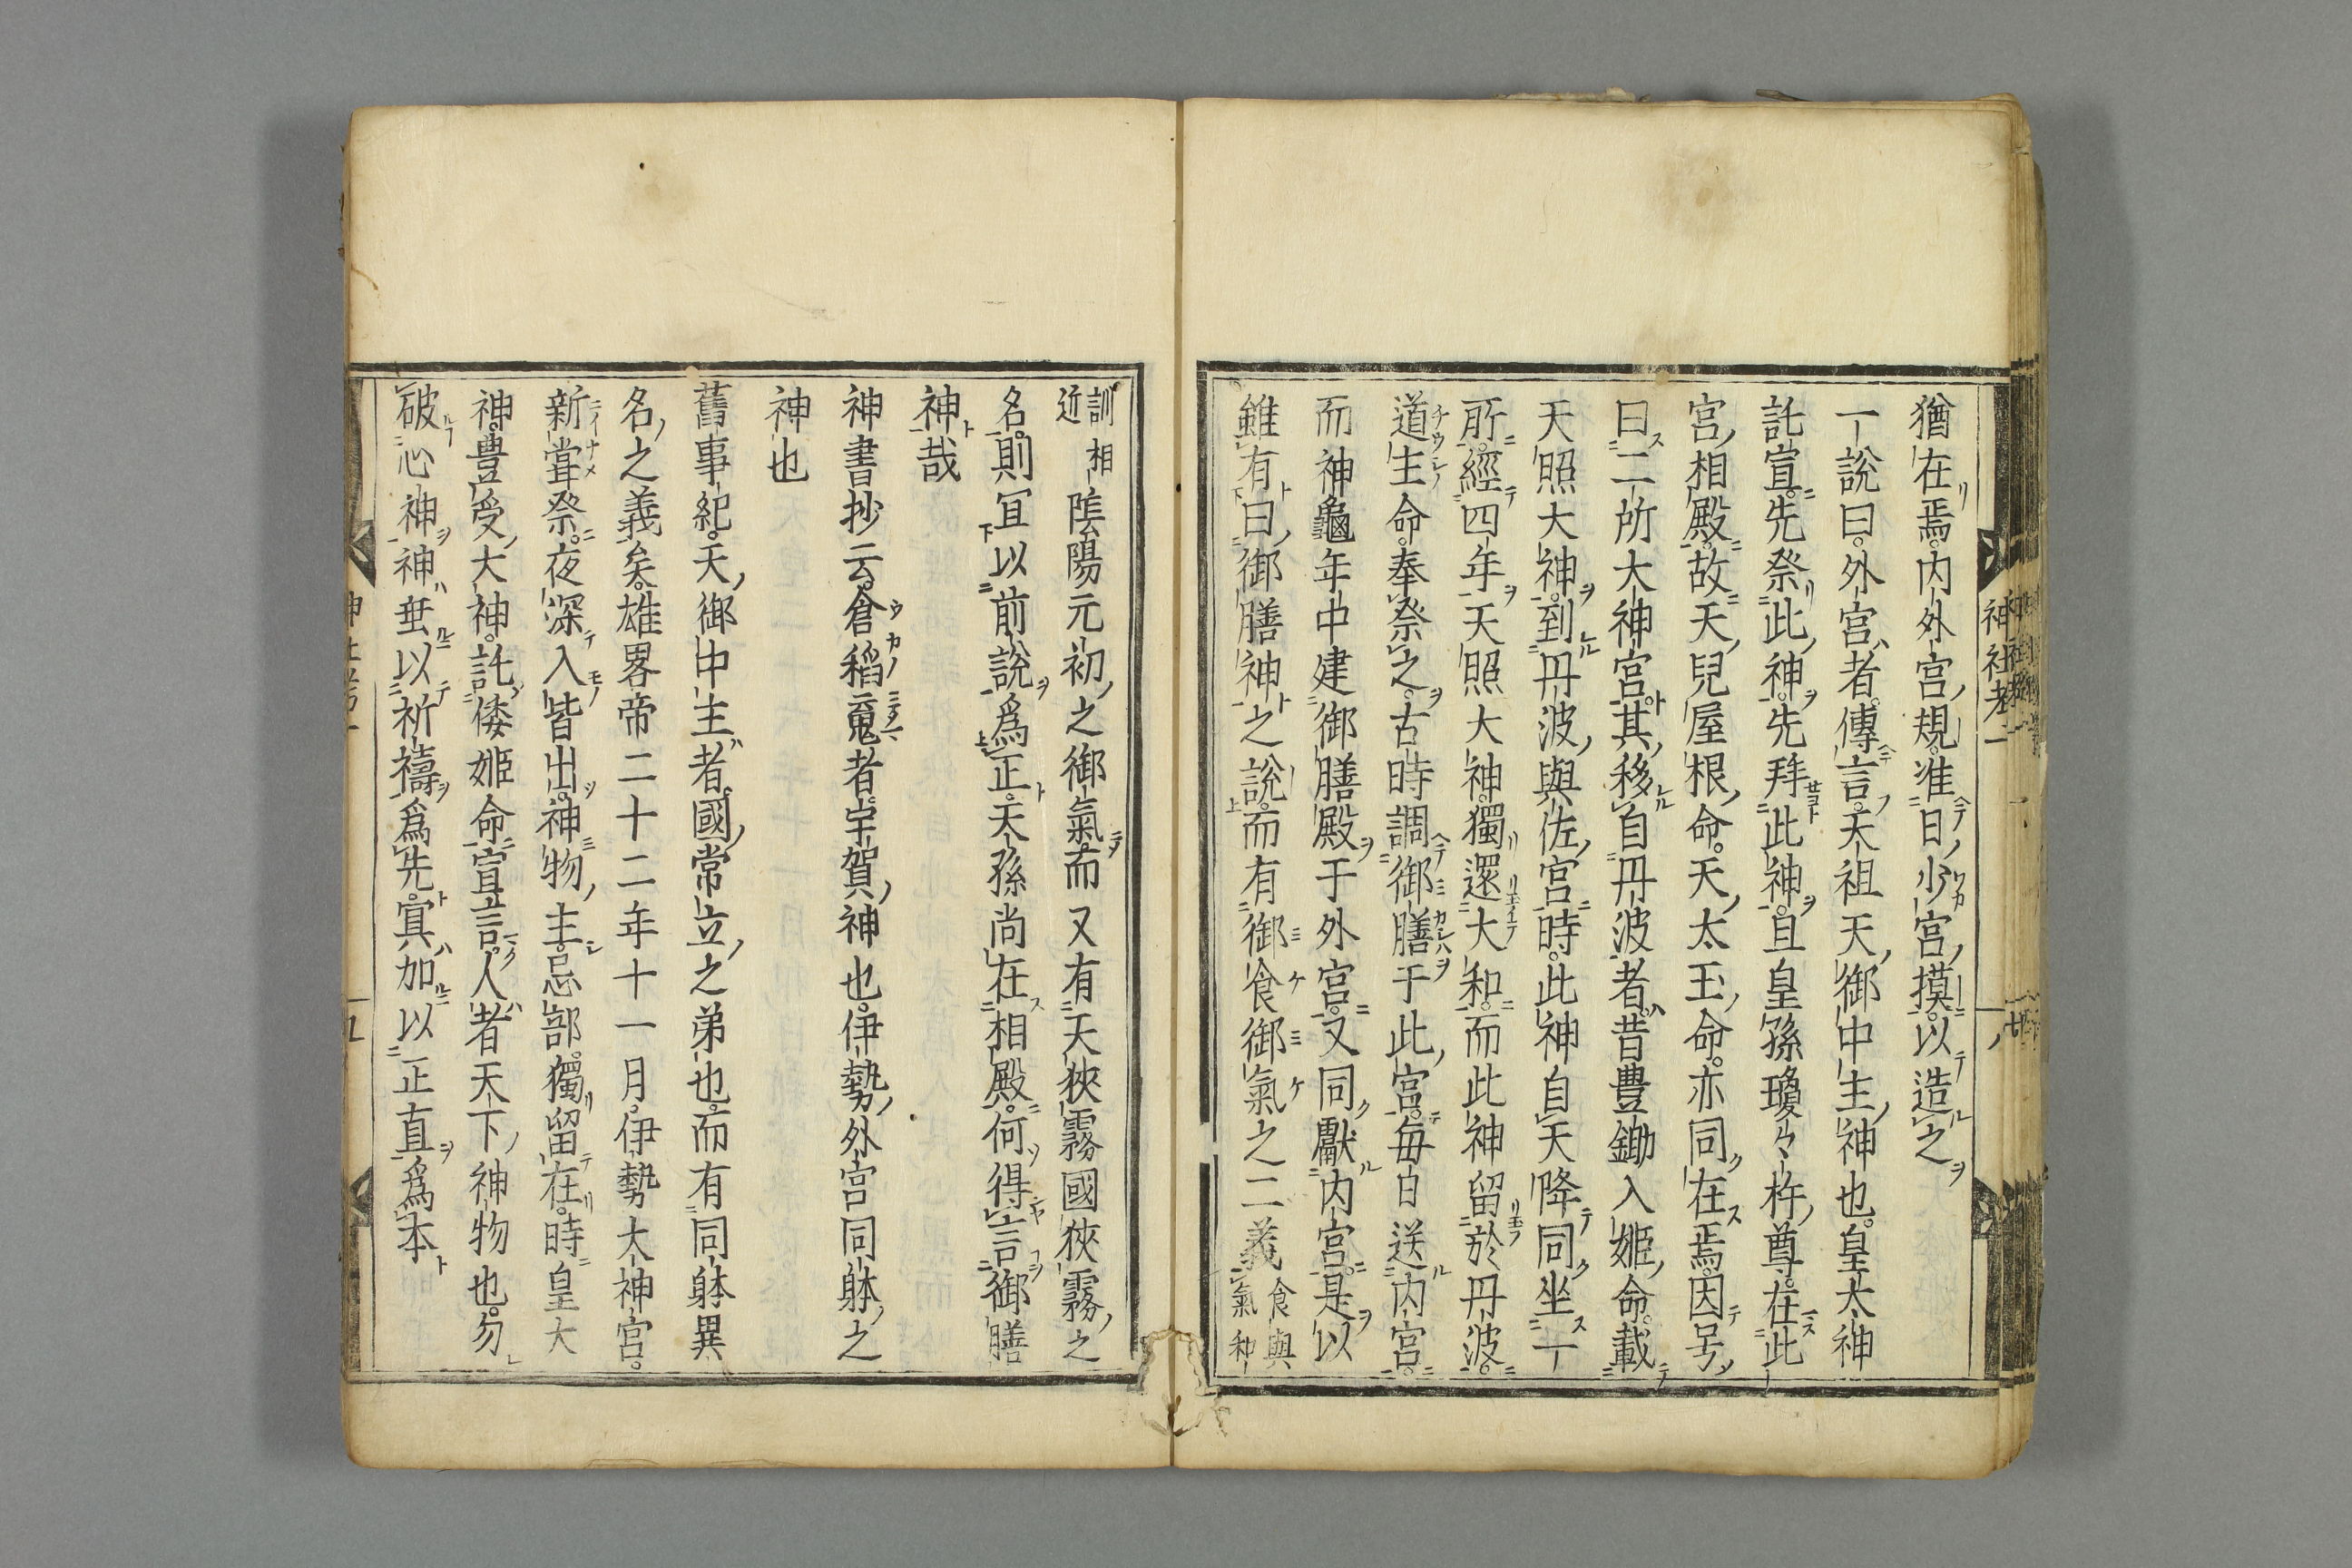 猶在焉内外宮規准日少宮摸以造之
一說曰外宮者傳言天祖天御中主神也皇太神
託宣先祭此神先拜此神且皇孫瓊々杵尊在此
宮相殿故天兒屋根命天太玉命亦同在焉因号
曰二所大神宮其移自丹波者昔豊鋤入姬命載
天照大神到丹波與佐宮時此神自天降同坐一
所經四年天照大神獨還大和而此神留於丹波
道主命奉祭之古時調御膳于此宮每日送内宮
而神龜年中建御膳殿于外宮又同獻内宮是以
雖有曰御膳神之說而有御食御氣之二義食與氣和
訓相近陰陽元初之御氣而又有天狹霧國狹霧之
名則冝以前說爲正天孫尚在相殿何得言御膳
神哉
神書抄云倉稻䰠者宇賀神也伊勢外宮同躰之
神也
舊事紀天御中主者國常立之弟也而有同躰異
名之義矣雄畧帝二十二年十一月伊勢大神宮
新甞祭夜深入皆出神物主忌部獨留在時皇大
神豊受大神託倭姬命宣言人者天下神物也勿
破心神神埀以祈禱爲先冥加以正直爲本
神社考一